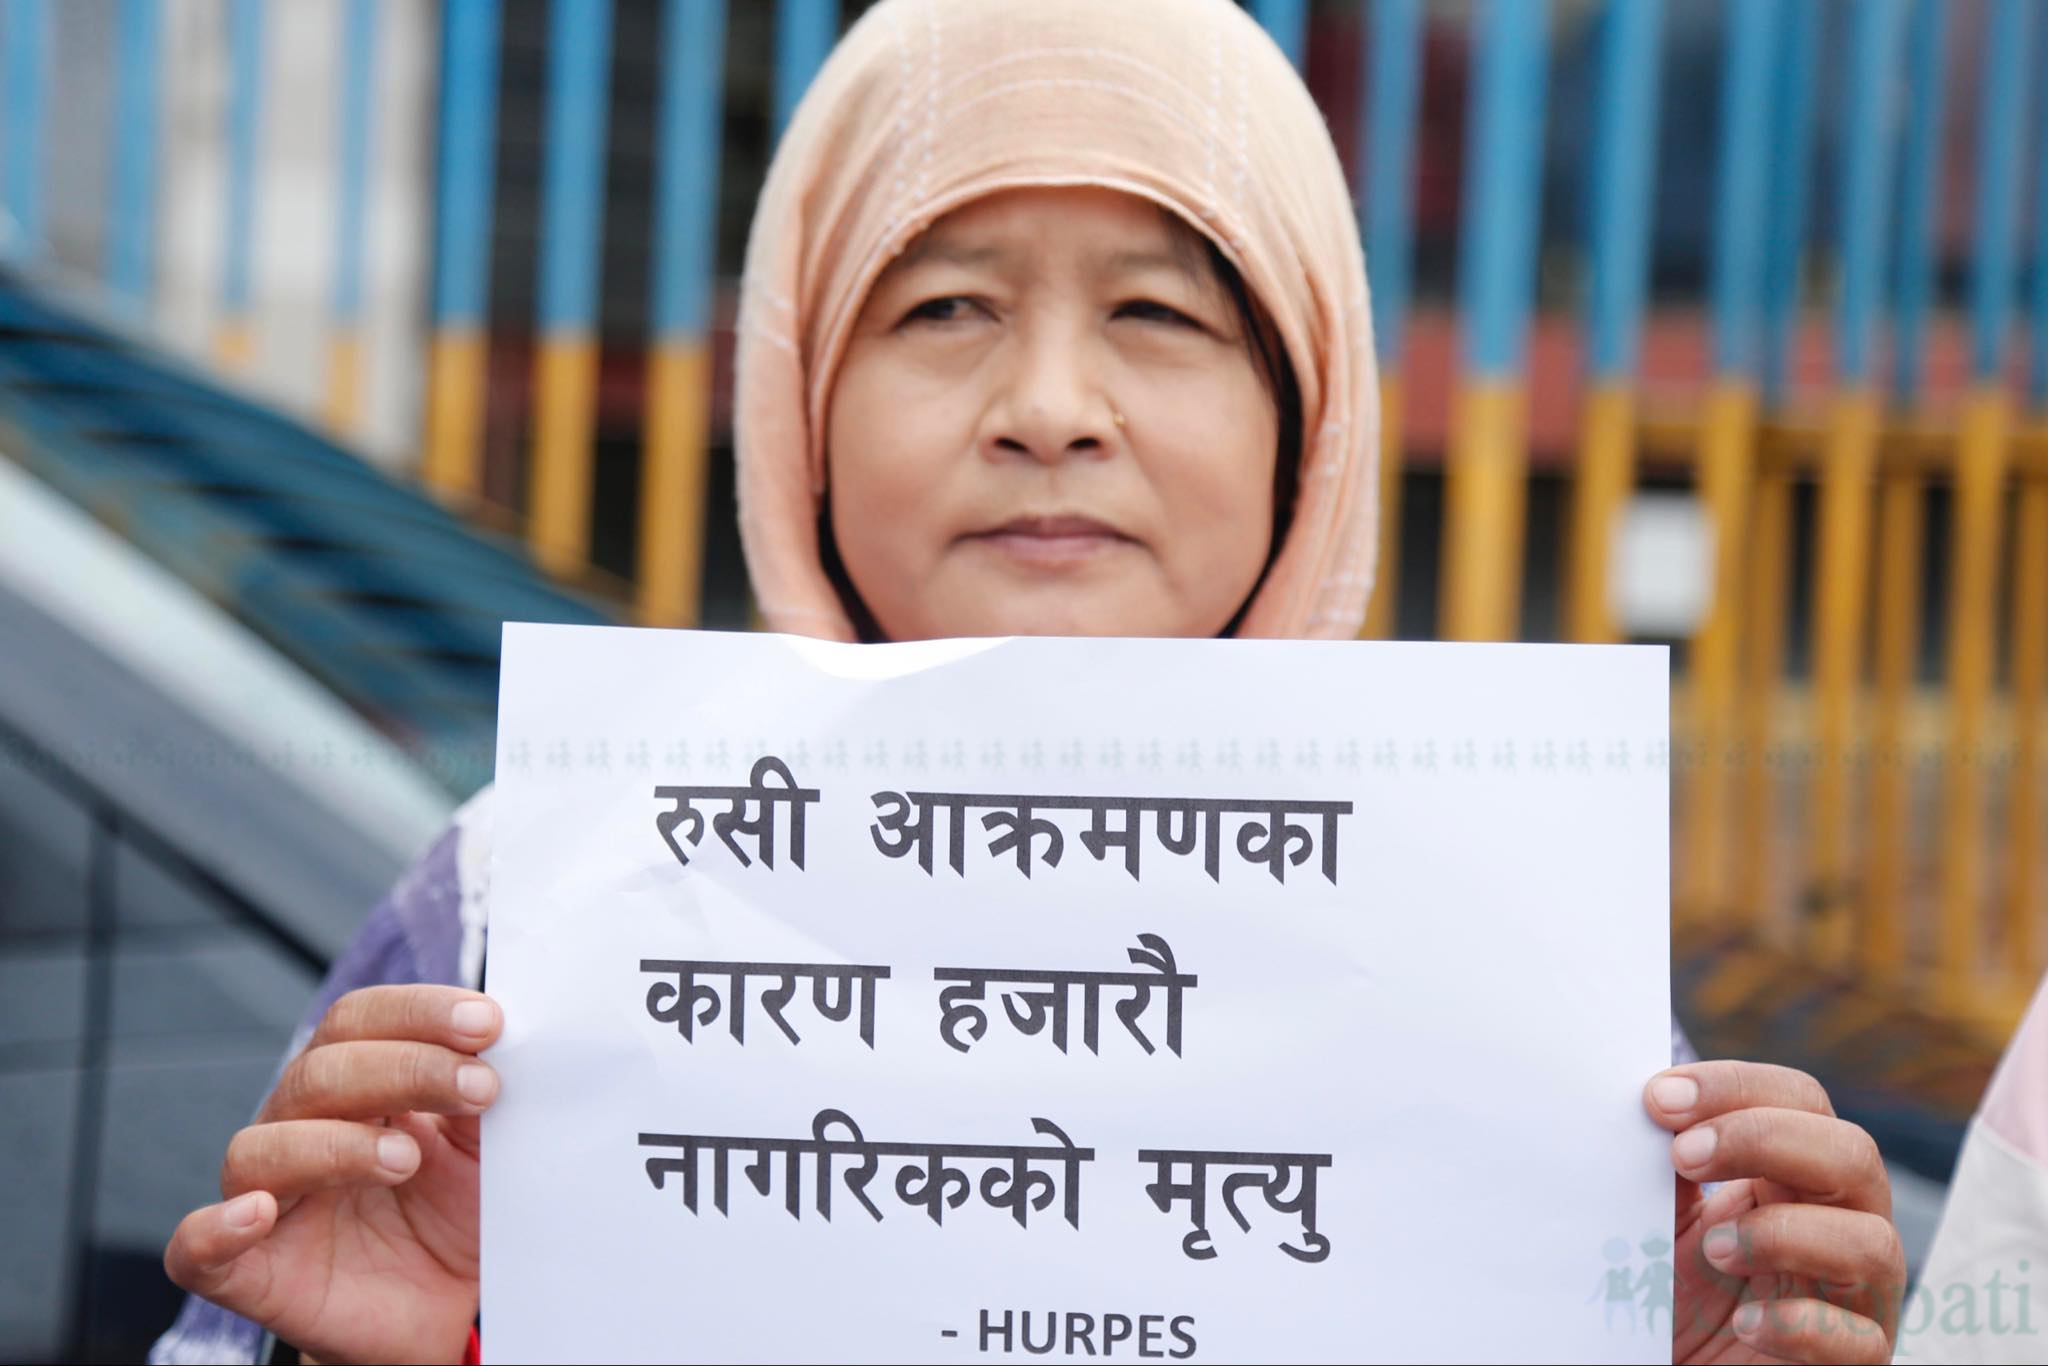 रुसी आक्रमणका
कारण हजारौ
नागरिकको मृत्यु
- HURPES
Setopati